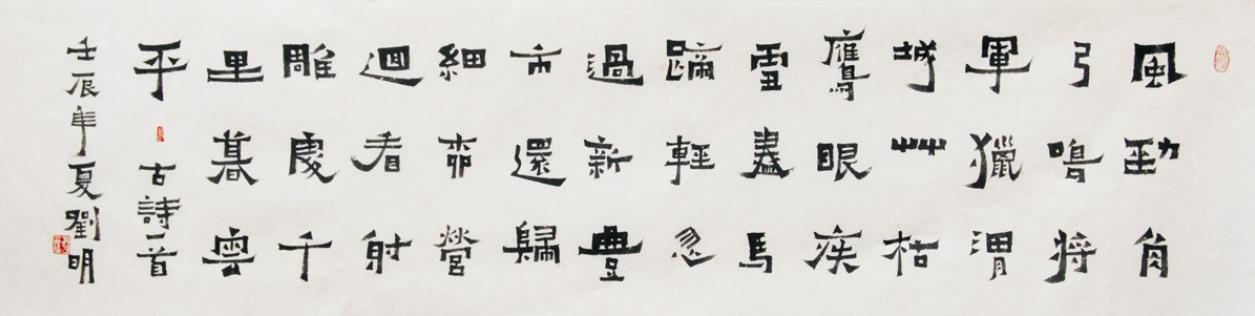 風勁角
弓鳴將
軍獵渭
城艸枯
鷹眼疾
雪盡馬
蹄輕忽
過新豐
市還歸
細柳營
迴看射
雕處千
里暮雲
平 古詩一首
壬辰年夏劉明